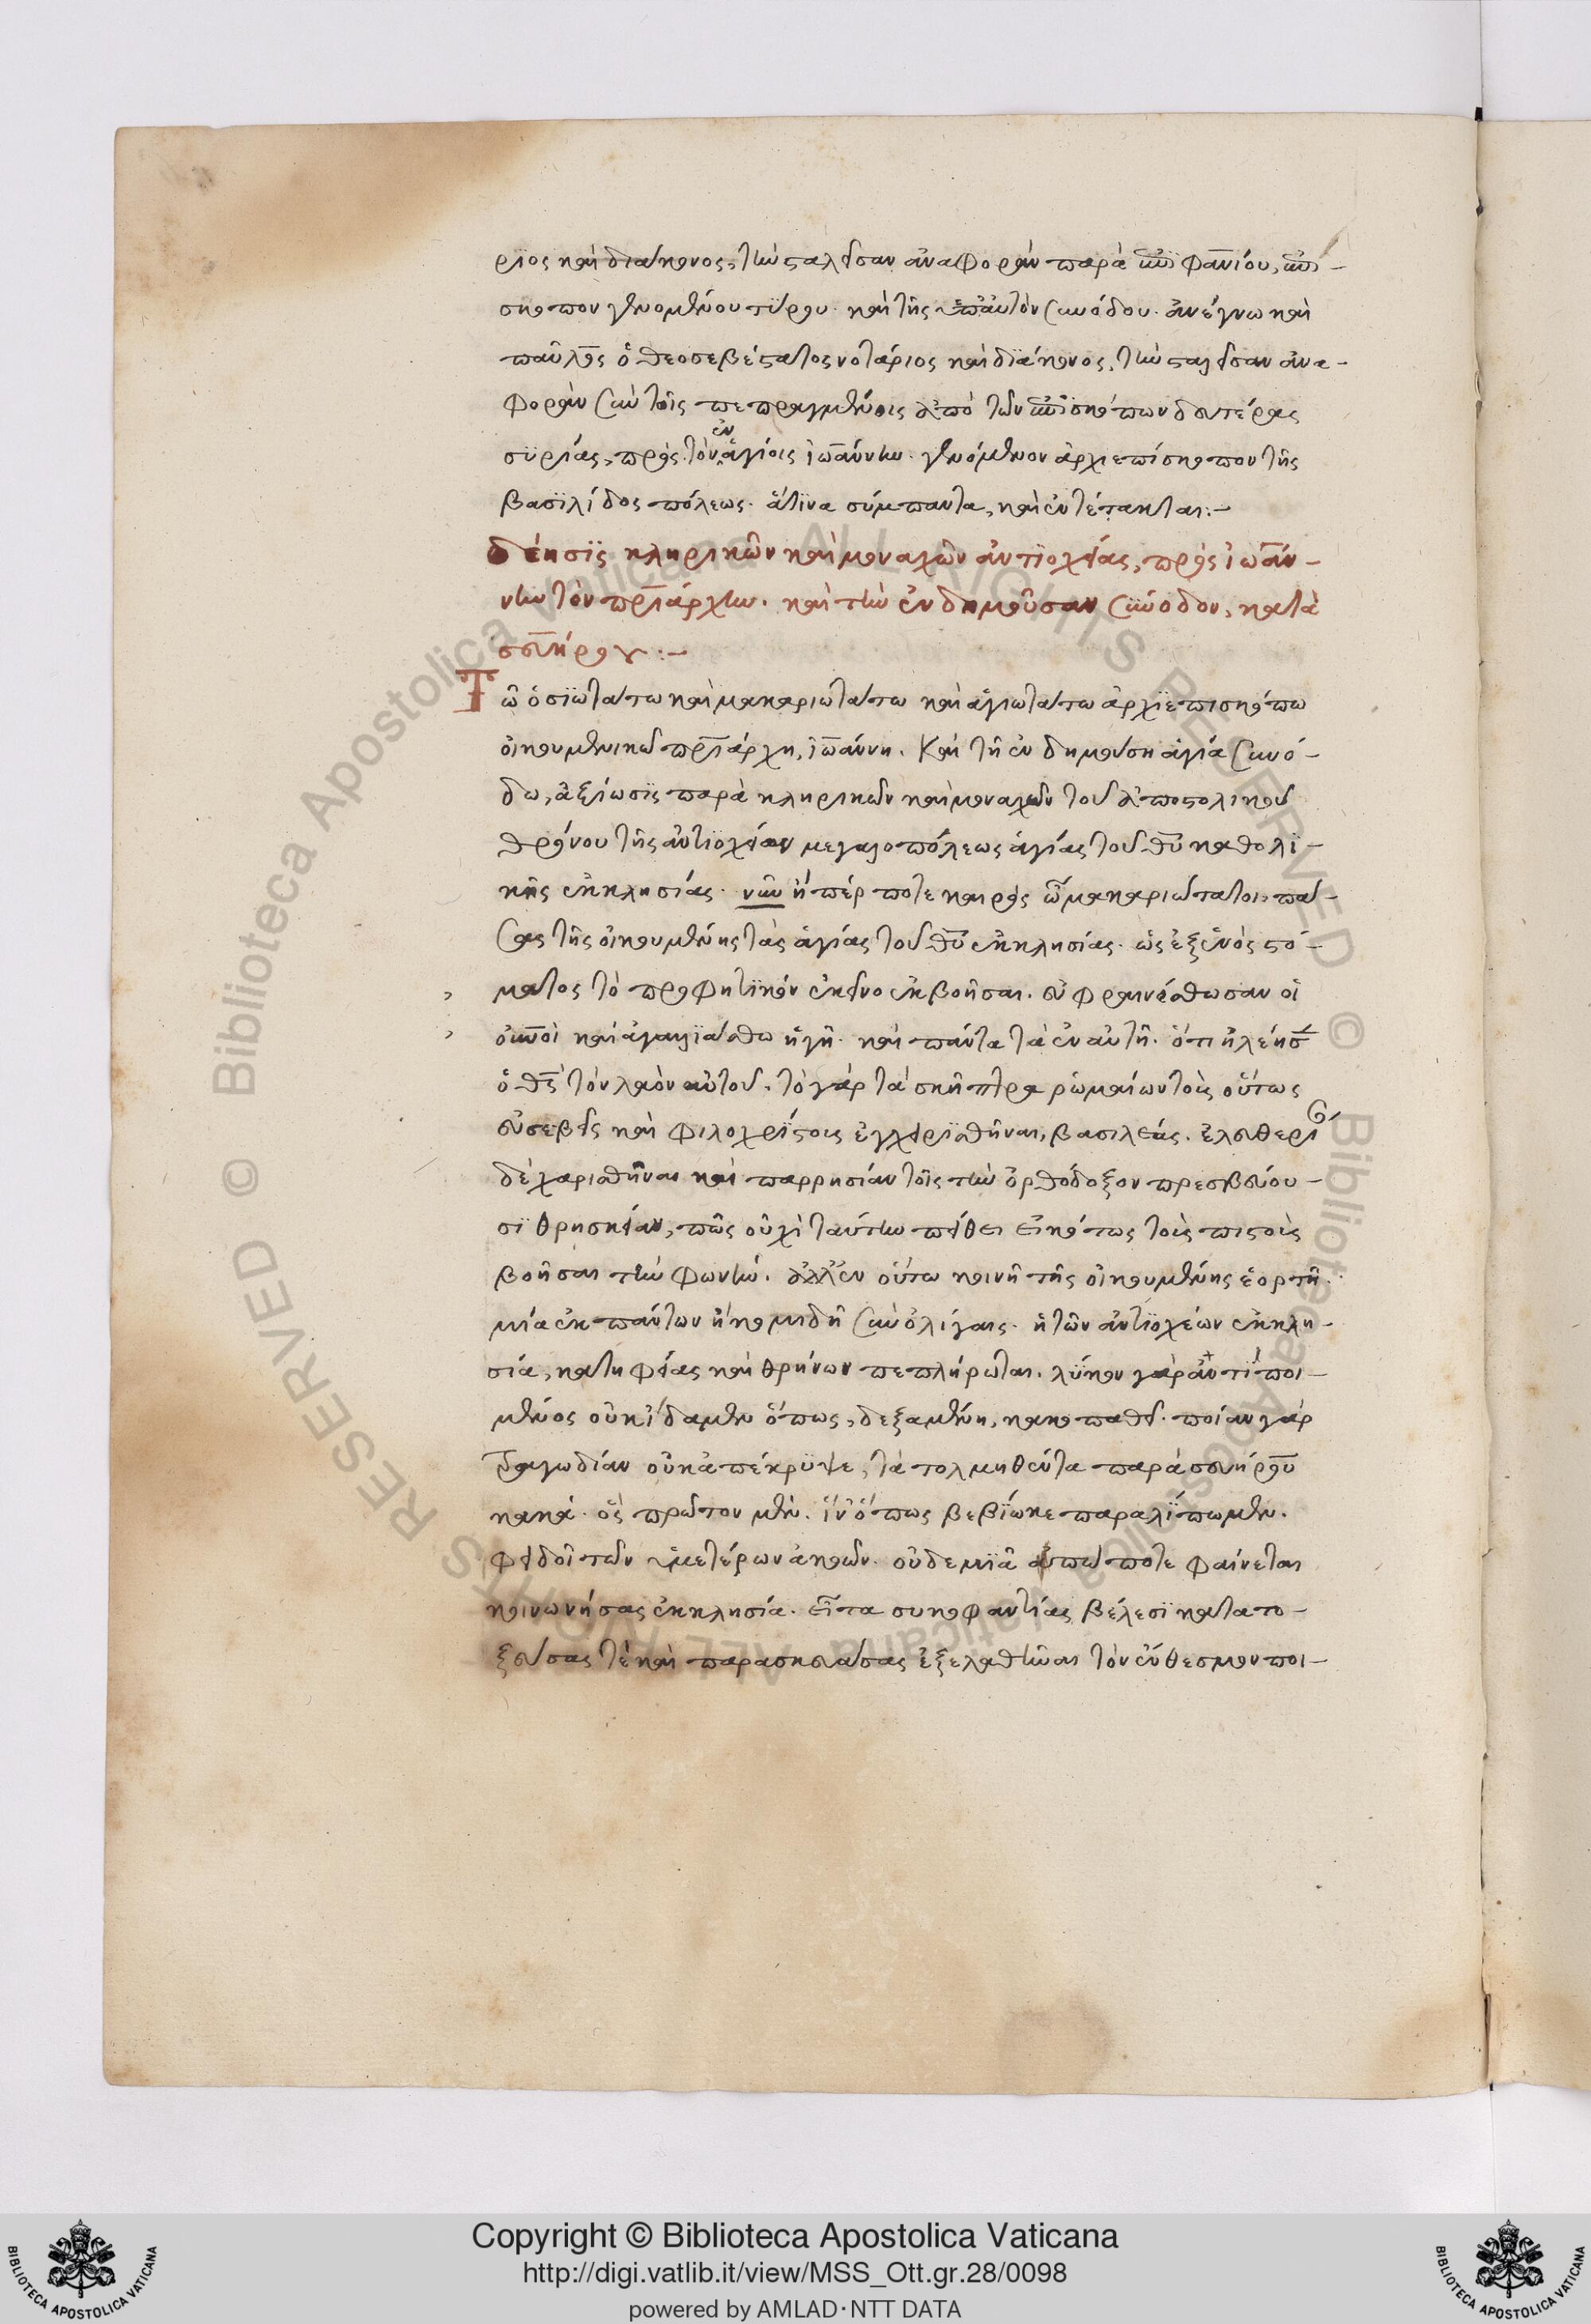 ριος καὶ διάκονος, τὴν σταλεῖσαν ἀναφορὰν παρὰ ἐπιφανίου, ἐπι-
σκόπου γενομένου τύρου. καὶ τῆς ὑπ' αὐτὸν συνόδου. ἀνέγνω καὶ
παῦλος ὁ θεοσεβέστατος νοτάριος καὶ διάκονος, τὴν σταλεῖσαν ἀνα-
φορὰν σὺν τοῖς πεπραγμένοις ἀπὸ τῶν ἐπισκόπων δευτέρας
συρίας, πρὸς τὸν ἐν ἁγίοις ἰωάννην. γενόμενον ἀρχιεπίσκοπον τῆς
βασιλίδος πόλεως. ἅτινα σύμπαντα, καὶ ἐντέτακται:-
δέησις κληρικῶν καὶ μοναχῶν ἀντιοχείας, πρὸς ἰωάν-
νην τὸν πριάρχην. καὶ τὴν ἐνδημοῦσαν σύνοδον, κατὰ
σευήρου:-
Τῶ ὁσιωτάτω καὶ μακαριωτάτω καὶ ἁγιωτάτω ἀρχιεπισκόπω
οἰκουμενικῶ πριάρχη, ἰωάννη. Καὶ τῆ ἐνδημούση ἁγία συνό-
δω, ἀξίωσις παρὰ κληρικῶν καὶ μοναχῶν τοῦ ἀποστολικοῦ
θρόνου τῆς ἀντιοχείας μεγαλοπόλεως ἁγίας τοῦ θυ καθολι-
κῆς ἐκκλησίας. νῦν ἤπέρ ποτε καιρὸς ὦ μακαριώτατοι, πά-
σας τῆς οἰκουμένης τὰς ἁγίας τοῦ θυ ἐκκλησίας. ὡς ἐξ ἑνὸς στό-
ματος τὸ προφητικὸν ἐκεῖνο ἐκβοῆσαι. εὐφραινέσθωσαν οἱ
οὐνοὶ καὶ ἀγαλλιάσθω ἡ γῆ. καὶ πάντα τὰ ἐν αὐτῆ. ὅτι ἠλέησ
ὁ θς τὸν λαὸν αὐτοῦ. τὸ γὰρ τὰ σκῆπτρα ῥωμαίων τοῖς οὕτως
εὐσεβεῖς καὶ φιλοχρίστοις ἐγχειρισθῆναι, βασιλεῦς. ἐλευθερι
δὲ χαρισθῆναι καὶ παρρησίαν τοῖς τὴν ὀρθόδοξον πρεσβεύου-
σι θρησκείαν, πῶς οὐχὶ ταύτην πείθει εἰκότως τοῖς πιστοῖς
βοῆσαι τὴν φωνήν. ἀλλ' ἐν οὕτω κοινῆ τῆς οἰκουμένης ἑορτῆ.
μία ἐκ πάντων ἢ κομιδῆ σὺν ὀλίγαις. ἡ τῶν ἀντιοχέων ἐκκλη-
σία, κατηφείας καὶ θρήνων πεπλήρωται. λύκον γὰρ ἀντὶ ποι-
μένος οὐκ ἴδαμεν ὅπως, δεξαμένη, κακοπαθεῖ. ποίαν γὰρ
τραγωδίαν οὐκ ἀπέκρυψε, τὰ τολμηθέντα παρὰ σευήρου
κακά. ὃς πρῶτον μὲν. ἵν' ὅπως βεβίωκε παραλίπωμεν.
φειδοῖ τῶν ὑμετέρων ἀκοῶν. οὐδεμιᾶ πώποτε φαίνεται
κοινωνήσας ἐκκλησία. εἶτα συκοφαντίας βέλεσι κατατο-
ξεύσας τὲ καὶ παρασκευάσας ἐξελαθῆναι τὸν ἔνθεσμον ποι-
Copyright © Biblioteca Apostolica Vaticana
http://digi.vatlib.it/view/MSS_Ott.gr.28/0098
powered by AMLAD·NTT DATA